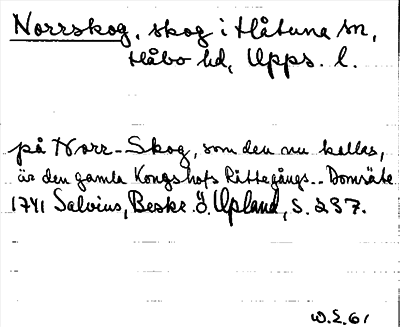 Norrskog, skog i Håtuna sn,
Håbo hd, Upps. l.
på Norr-Skog, som den nu kallas,
är den gamla Kongshofs Rättegångs-- Domsäte
1741 Salvius, Beskr. Ö. Upland, S. 237.
W.E. 61